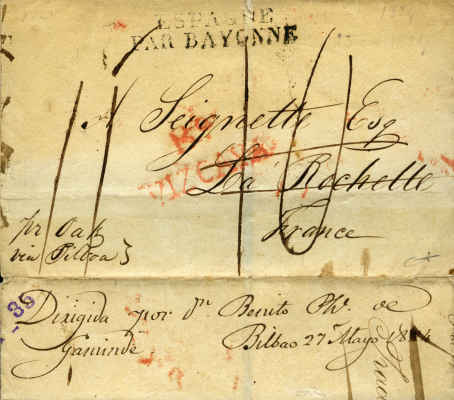 ESPAGNE
PAR BAYONNE
A Seignette Esq
VIZCAYA
La Rochelle
France
pr Oak
via Bilboa
39
Dirigida por Dn Benito Ph. de
Gaminde
Bilbao 27 Mayo